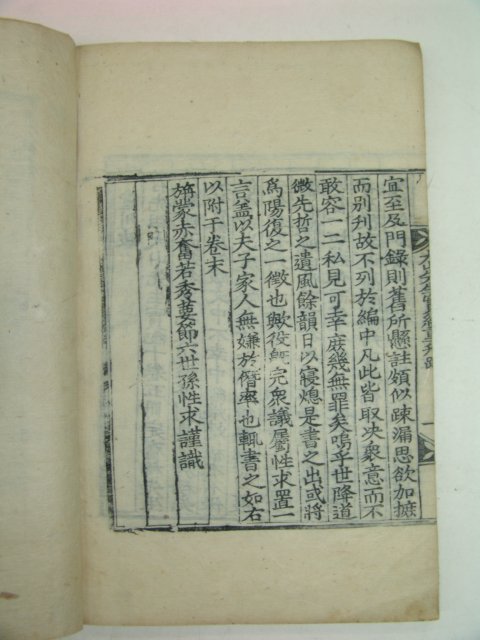 宜至及門錄則舊所懸註頗似疎漏思欲加摭
而別刊故不列於編中凡此皆取决衆意而不
敢容一二私見可幸庶幾無罪矣嗚乎世降道
微先哲之遺風餘韻日以寝熄是書之出或將
爲陽復之一徵也歟役旣完衆議屬性求置一
言盖以夫子家人無嫌於僭率也輒書之如右
以附于卷末
旃蒙赤奮若秀葽節六世孫性求謹識